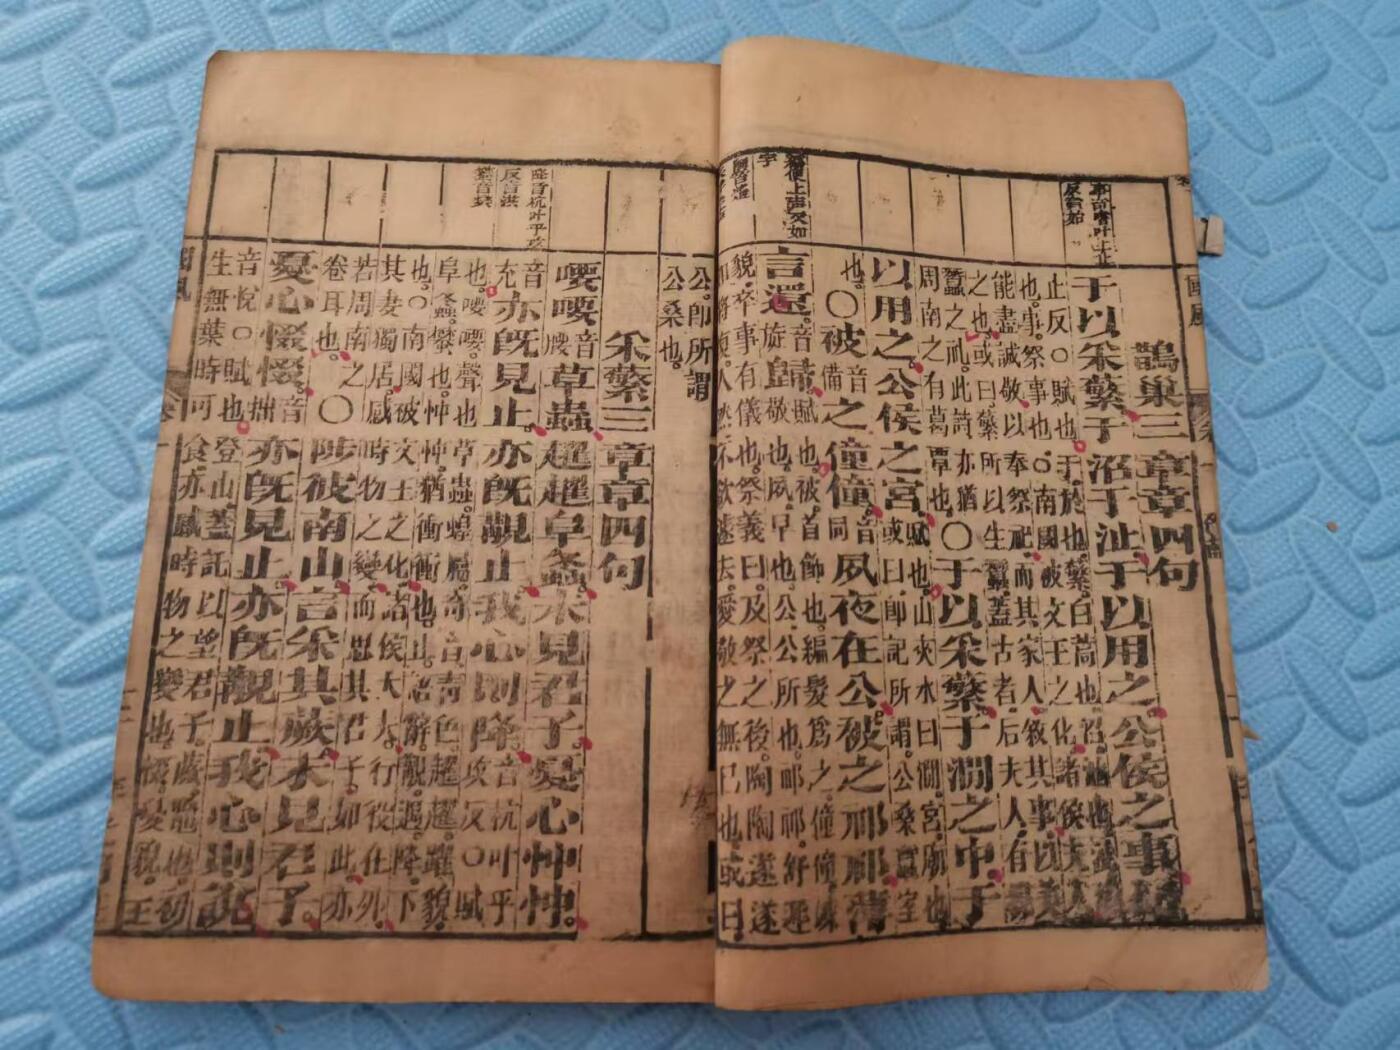 國風
鵲巢三章章四句
于以采蘩于沼于沚于以用之公侯之事
止反○賦也于於也蘩白蒿也沼池也
也事祭事也○南國被文王之化諸侯夫人
能盡誠敬以奉祭祀而其家人敘其事以美
之也或曰蘩所以生蠶蓋古者后夫人有
蠶之禮此詩亦猶
周南之有葛覃也○于以采蘩于澗之中于
以用之公侯之宮賦也山夾水曰澗宮廟也
或曰即記所謂公桑蠶室
也○被音備之僮僮音同夙夜在公被之祁祁薄
言還音旋歸賦也被首飾也編髮爲之僮僮竦
敬也夙早也公公所也祁祁舒遲
貌卒事有儀也祭義曰及祭之後陶陶遂遂
如將復入然不欲遽去愛敬之無已也或曰
公即所謂
公桑也
采蘩三章章四句
喓喓音腰草蟲趯趯阜螽未見君子憂心忡忡
音充亦既見止亦既覯止我心則降音杭叶乎
攻反○賦
也喓喓聲也草蟲蝗屬奇音青色趯趯躍貌
阜螽蠜也忡忡猶衝衝也止語辭覯遇降下
也○南國被文王之化諸侯大夫行役在外
其妻獨居感時物之變而思其君子如此亦
若周南之
卷耳也○陟彼南山言采其蕨未見君子
憂心惙惙音拙亦既見止亦既覯止我心則說
音悅○賦也登山蓋託以望君子蕨鼈也初
生無葉時可食亦感時物之變也惙憂貌王
國風